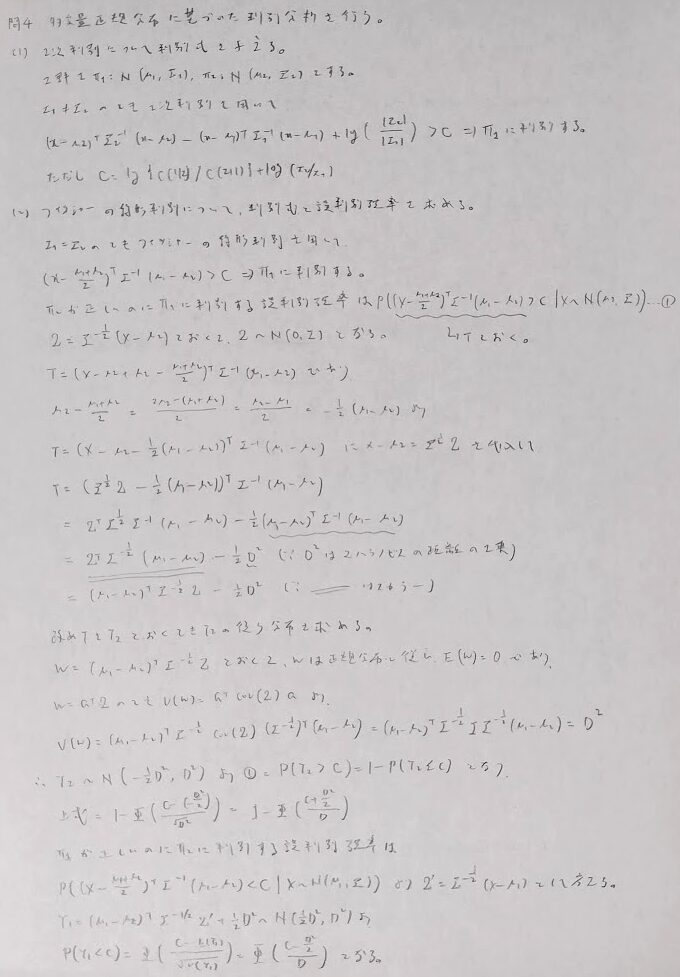 問4 多変量正規分布に基づいた判別分析を行う。
(1) 2次判別について判別式を与える。
2群をπ₁: N(μ₁, Σ₁), π₂: N(μ₂, Σ₂)とする。
Σ₁≠Σ₂のとき2次判別を用いて
(x-μ₂)ᵀΣ₂⁻¹(x-μ₂) - (x-μ₁)ᵀΣ₁⁻¹(x-μ₁) + log(|Σ₂|/|Σ₁|) > C ⇒ π₁に判別する。
ただし C = log{C(1|2)/C(2|1)} + log(π₂/π₁)
(2) フィッシャーの線形判別について、判別式と誤判別確率を求める。
Σ₁=Σ₂のときフィッシャーの線形判別を用いて、
(x - (μ₁+μ₂)/2)ᵀΣ⁻¹(μ₁-μ₂) > C ⇒ π₁に判別する。
π₂が正しいのにπ₁に判別する誤判別確率は P((X - (μ₁+μ₂)/2)ᵀΣ⁻¹(μ₁-μ₂) > C | X~N(μ₂, Σ)) …①
Z = Σ^{-1/2}(X-μ₂)とおくと、Z~N(0, I)となる。 ↳Tとおく。
T = (X-μ₂+μ₂ - (μ₁+μ₂)/2)ᵀΣ⁻¹(μ₁-μ₂)であり
μ₂ - (μ₁+μ₂)/2 = (2μ₂-(μ₁+μ₂))/2 = (μ₂-μ₁)/2 = -1/2(μ₁-μ₂)より
T = (X-μ₂-1/2(μ₁-μ₂))ᵀΣ⁻¹(μ₁-μ₂) に X-μ₂ = Σ^{1/2}Zを代入し
T = (Σ^{1/2}Z - 1/2(μ₁-μ₂))ᵀΣ⁻¹(μ₁-μ₂)
= ZᵀΣ^{1/2}Σ⁻¹(μ₁-μ₂) - 1/2(μ₁-μ₂)ᵀΣ⁻¹(μ₁-μ₂)
= ZᵀΣ^{-1/2}(μ₁-μ₂) - 1/2D² (∵ D²はマハラノビスの距離の2乗)
= (μ₁-μ₂)ᵀΣ^{-1/2}Z - 1/2D² (∵ ══ はスカラー)
改めTをT₂とおくときT₂の従う分布を求める。
W = (μ₁-μ₂)ᵀΣ^{-1/2}Zとおくと、Wは正規分布に従い、E(W)=0であり、
W = aᵀZのときV(W) = aᵀcov(Z)aより、
V(W) = (μ₁-μ₂)ᵀΣ^{-1/2}cov(Z)(Σ^{-1/2})ᵀ(μ₁-μ₂) = (μ₁-μ₂)ᵀΣ^{-1/2}IΣ^{-1/2}(μ₁-μ₂) = D²
∴ T₂~N(-1/2D², D²)より ① = P(T₂>C) = 1-P(T₂≤C)となり、
上式 = 1-Φ((C-(-D²/2))/√D²) = 1-Φ((C+D²/2)/D)
π₁が正しいのにπ₂に判別する誤判別確率は
P((X-(μ₁+μ₂)/2)ᵀΣ⁻¹(μ₁-μ₂)<C | X~N(μ₁, Σ))より Z' = Σ^{-1/2}(X-μ₁)として考える。
T₁ = (μ₁-μ₂)ᵀΣ^{-1/2}Z' + 1/2D² ~ N(1/2D², D²)より
P(T₁<C) = Φ((C-E(T₁))/√V(T₁)) = Φ((C-D²/2)/D)となる。